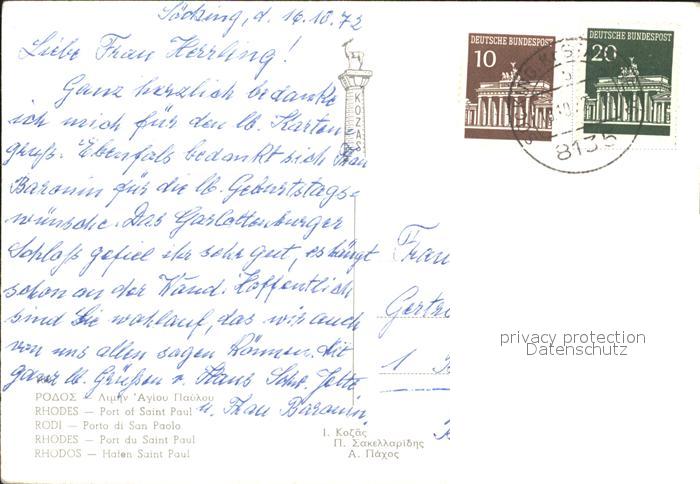 Söcking, d. 16.10.72
Liebe Frau Herrling!
Ganz herzlich bedanke
ich mich für den lb. Karten-
gruß. Ebenfals bedankt sich Frau
Baronin für die lb. Geburtstags-
wünsche. Das Garlottenburger
Schloß gefiel ihr sehr gut, es hängt
schon an der Wand. Hoffentlich
sind Sie wohlauf, das wir auch
von uns allen sagen können. Mit
ganz lb. Grüßen v. Hans
u. Frau Baronin
KOZAS
DEUTSCHE BUNDESPOST
10
DEUTSCHE BUNDESPOST
20
8135
Frau
Gertr
1
privacy protection
Datenschutz
ΡΟΔΟΣ — Λιμὴν Ἁγίου Παύλου
RHODES — Port of Saint Paul
RODI — Porto di San Paolo
RHODES — Port du Saint Paul
RHODOS — Hafen Saint Paul
Ι. Κοζᾶς
Π. Σακελλαρίδης
Α. Πάχος